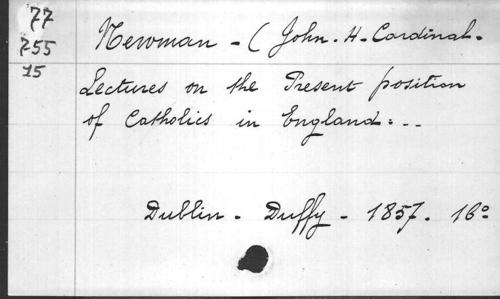 77
755
15
Newman - (John-H-Cardinal-
Lectures on the Present position
of Catholics in England:--
Dublin - Duffy - 1857. 16º